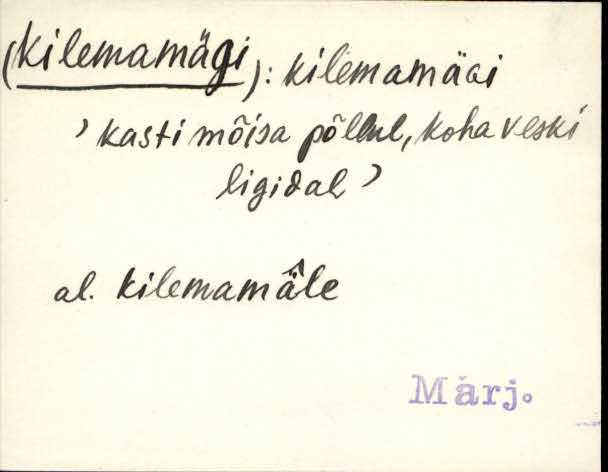 (kilemamägi): kilemamäɢi
› kasti mõisa põllul, koha veski
ligidal ›
al. kilemamä̂le
Märj.